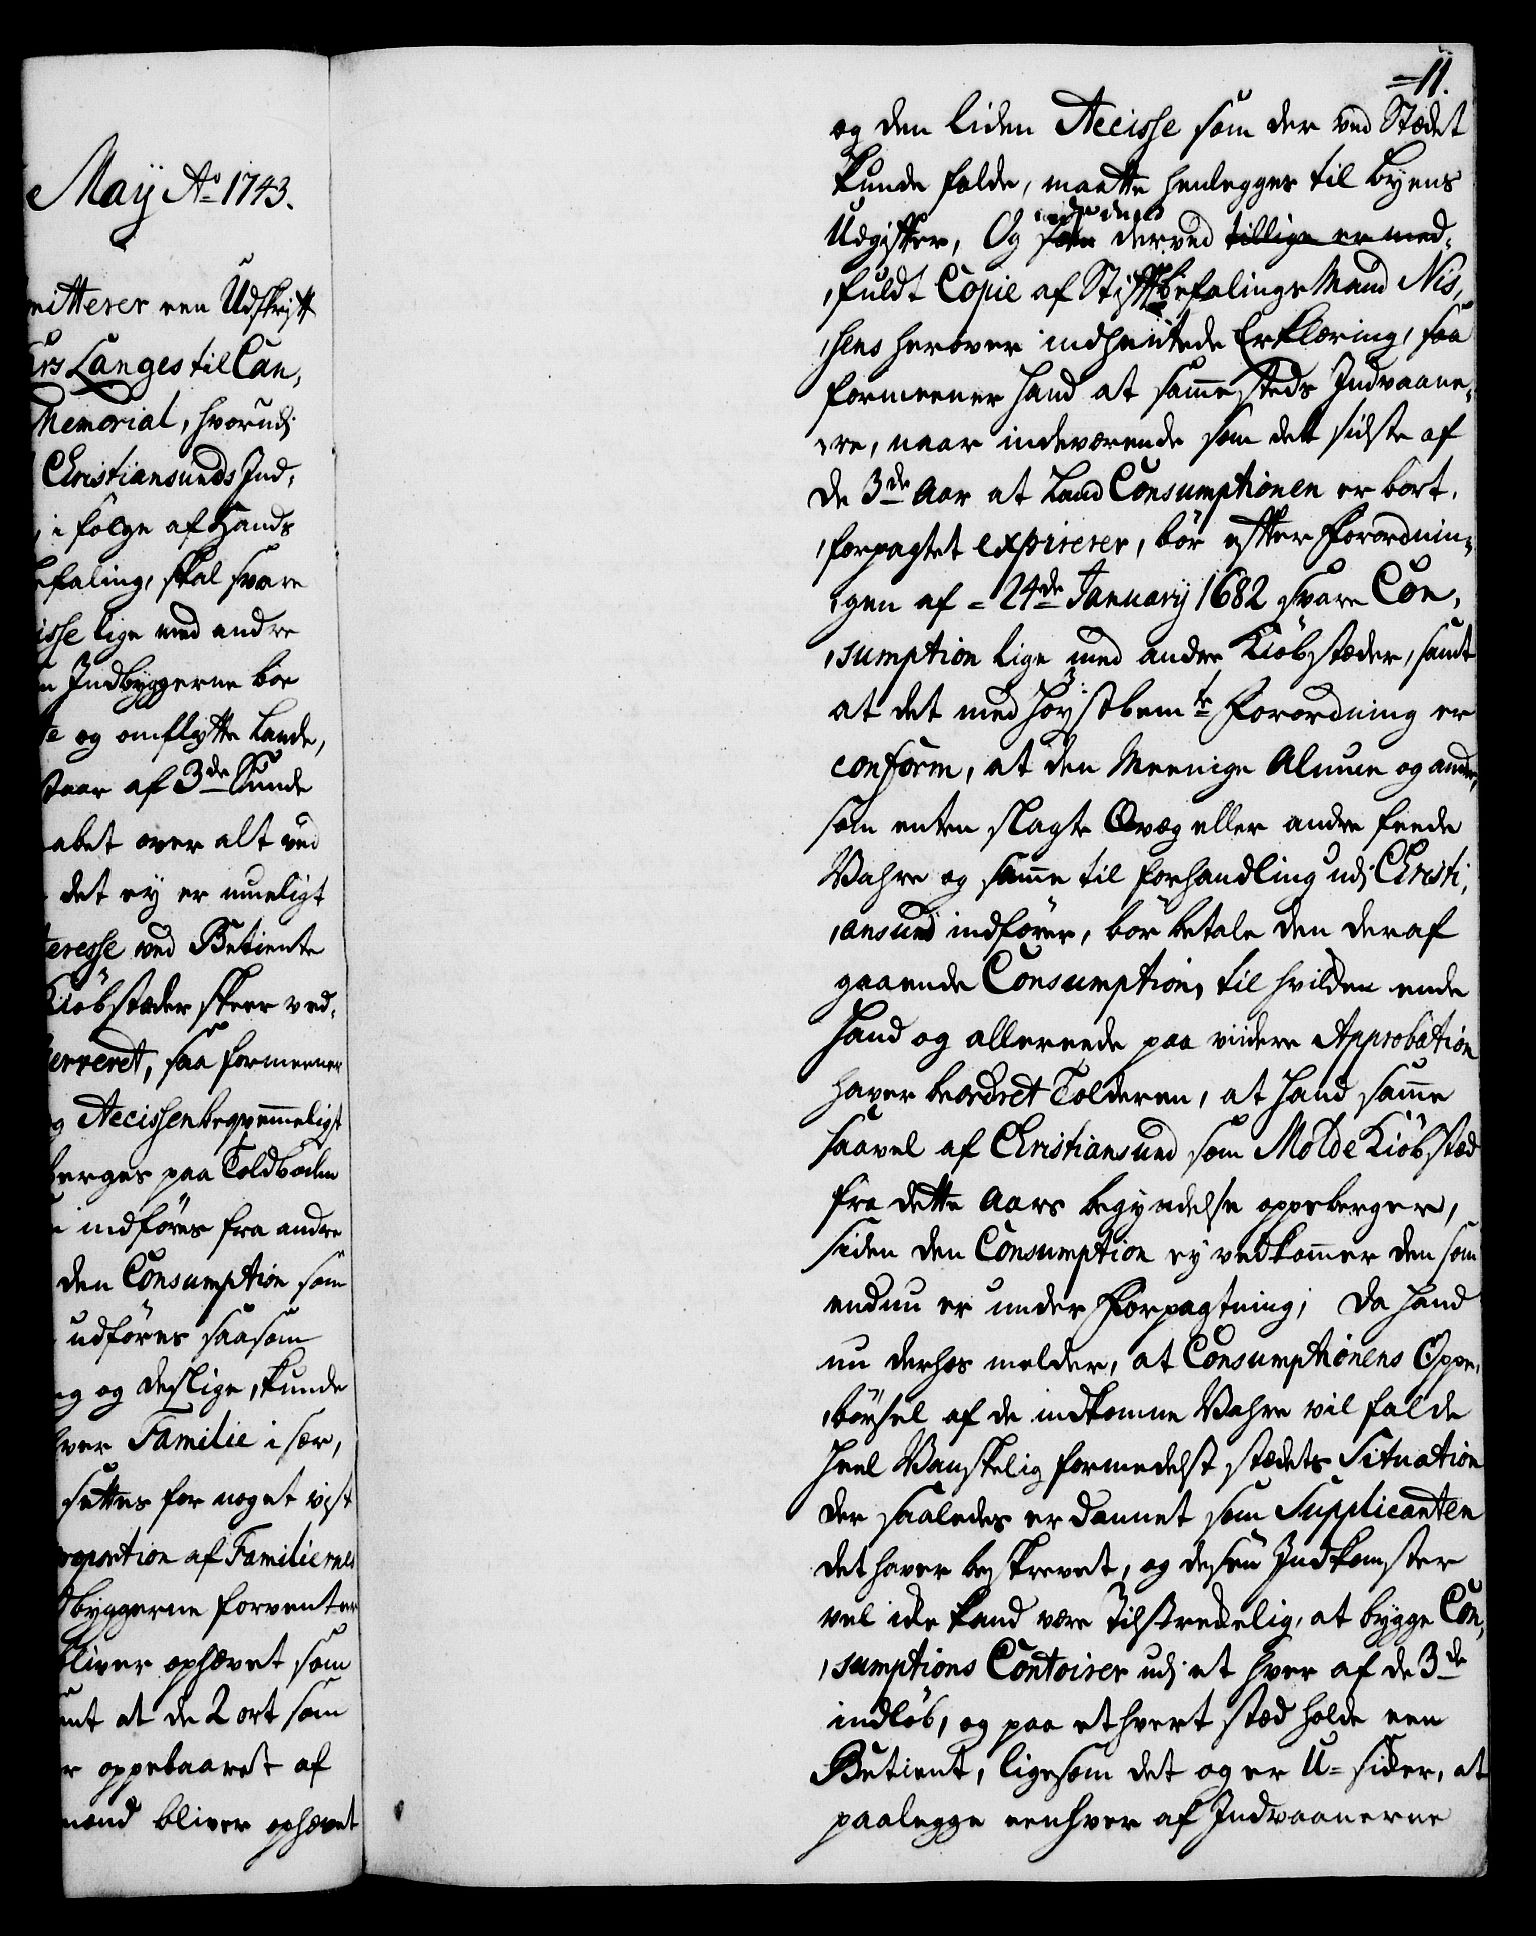 May Aº 1743.
mitterer een Udskrift
Langes til Can,
Memorial, hvorudj
Christiansunds Ind,
i følge af Hands
befaling, skal svare
isse lige med andre
Indbyggerne boe
og omflytte Lande,
staar af 3de Sunde
abet over alt ved
det ey er mueligt
teresse ved Betiente
Kiöbstæder skeer ved,
erveret, saa formeener
Accissen beqvemmeligst
berges paa Toldboden
indföres fra andre
den Consumption som
udföres saasom
og deslige, kunde
hver Familie i sær,
settes for noget vist
roportion af Familiernes
dbyggerne forventer
bliver ophævet som
at de 2 ort som
oppebaaret af
mænd bliver ophævet
=11.
og den liden Accisse som der ved Stædet
kunde falde, maatte henlegges til Byens
Udgifter, Og som derved tillige er med,
,fuldt Copie af Stiftbefalings Mand Nis,
,sens herover indhentede Erklæring, saa
formeener hand at samme steds Indvaane,
,re, naar indeværende som det sidste af
de 3de Aar at Land Consumptionen er bort,
,forpagtet expirerer, bör efter Forordnin,
,gen af =24de January 1682 svare Con,
,sumption lige med andre Kiöbstæder, samt
at det med høystbemte Forordning er
conform, at den Meenige Almue og andre,
som enten slagte Qvæg eller andre feede
Vahre og samme til forhandling udj Christi,
,ansund indförer, bör betale den deraf
gaaende Consumption, til hvilken ende
hand og allereede paa viidere Approbation
haver beordret Tolderen, at hand samme
saavel af Christiansund som Molde Kiöbstæd
fra dette Aars begyndelse oppeberger,
siden den Consumption ey vedkommer den som
endnu er under Forpagtning; Da hand
nu derhos melder, at Consumptionens Oppe,
,börsel af de indkomne Vahre vil falde
heel Vanskelig formedelst stædets Situation
der saaledes er dannet som Supplicanten
det haver beskrevet, og desen Indkomster
vel icke kand være tilstreckelig, at bygge Con,
,sumptions Contoirer udj et hver af de 3de
indlöb, og paa ethvert stæd holde een
Betient, ligesom det og er U=sicker, at
paalegge eenhver af Indvaanerne